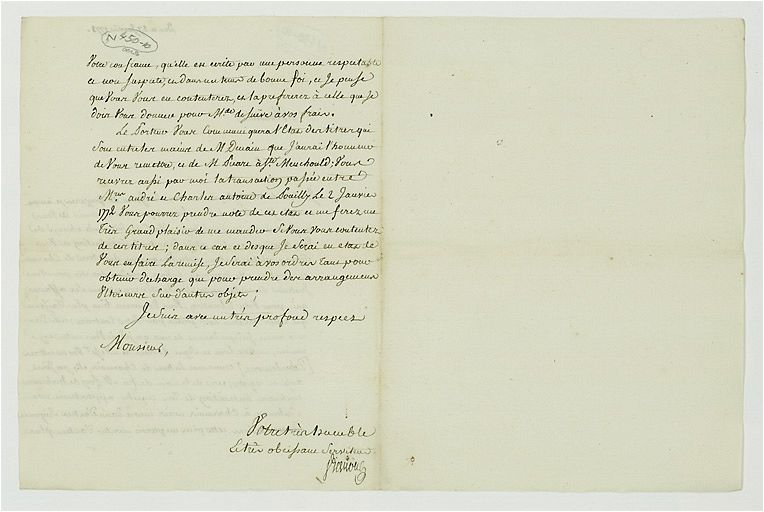 N 450-10
Votre confiance, qu'elle est ecrite par une personne respectable
et non suspecte, et dans un tems de bonne foi, et Je pense
que Vous Vous en contenterez, et la prefererez a celle que Je
dois Vous donner pour M. de Suire à vos frais.
Le Porteur Vous Communiquera l'Etat des titres qui
sont entre les mains de M Denain que J'aurai l'honneur
de Vous remettre, et de M Suare à Ste Menehould; Vous
recevrez aussi par moi la transaction passée entre
Mrs andré et Charles antoine de Pouilly Le 2 Janvier
1772 Vous pourrez prendre note de cet etat et me ferez un
Très Grand plaisir de me mander Si Vous Vous contentez
de ces titres; dans ce cas et des que Je Serai en etat de
Vous en faire La remise, Je Serai à vos ordres tant pour
obtenir decharge que pour prendre des arrangemens
Ulterieurs Sur d'autres objets;
Je Suis avec un très profond respect
Monsieur,
Votre très humble
et très obeissant Serviteur